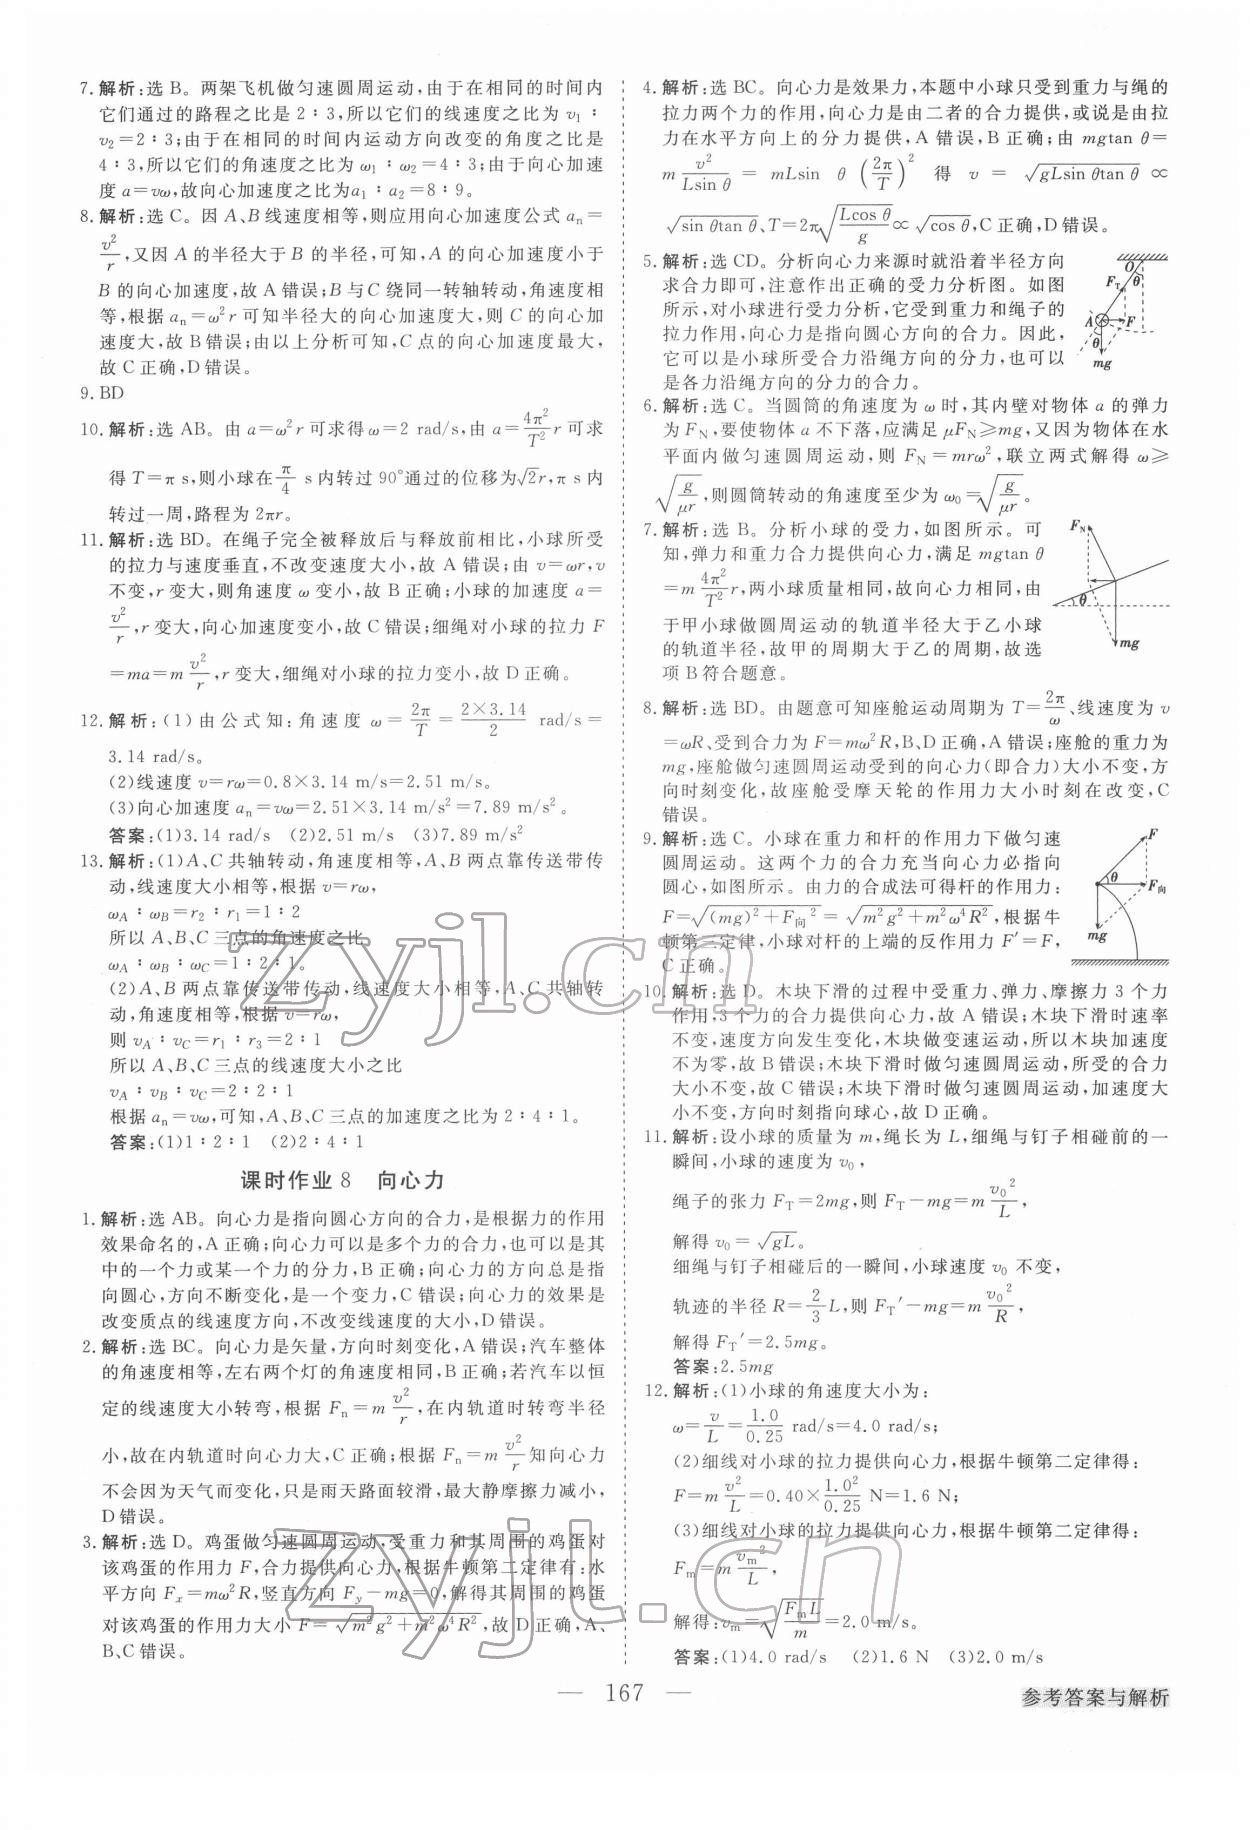 7. 解析:选 B。两架飞机做匀速圆周运动,由于在相同的时间内
它们通过的路程之比是 2∶3,所以它们的线速度之比为 v₁∶
v₂=2∶3;由于在相同的时间内运动方向改变的角度之比是
4∶3,所以它们的角速度之比为 ω₁∶ω₂=4∶3;由于向心加速
度 a=vω,故向心加速度之比为a₁∶a₂=8∶9。
8. 解析:选 C。因 A、B 线速度相等,则应用向心加速度公式 aₙ=
v²/r,又因 A 的半径大于 B 的半径,可知,A 的向心加速度小于
B 的向心加速度,故 A 错误;B 与 C 绕同一转轴转动,角速度相
等,根据 aₙ=ω²r 可知半径大的向心加速度大,则 C 的向心加
速度大,故 B 错误;由以上分析可知,C 点的向心加速度最大,
故 C 正确,D 错误。
9. BD
10. 解析:选 AB。由 a=ω²r 可求得 ω=2 rad/s,由 a=4π²/T² r 可求
得 T=π s,则小球在 π/4 s 内转过 90°通过的位移为√2r,π s 内
转过一周,路程为 2πr。
11. 解析:选 BD。在绳子完全被释放后与释放前相比,小球所受
的拉力与速度垂直,不改变速度大小,故 A 错误;由 v=ωr,v
不变,r 变大,则角速度 ω 变小,故 B 正确;小球的加速度 a=
v²/r,r 变大,向心加速度变小,故 C 错误;细绳对小球的拉力 F
=ma=m v²/r,r 变大,细绳对小球的拉力变小,故 D 正确。
12. 解析:(1)由公式知:角速度 ω=2π/T=2×3.14/2 rad/s=
3.14 rad/s。
(2)线速度 v=rω=0.8×3.14 m/s=2.51 m/s。
(3)向心加速度 aₙ=vω=2.51×3.14 m/s²=7.89 m/s²。
答案:(1)3.14 rad/s (2)2.51 m/s (3)7.89 m/s²
13. 解析:(1)A、C 共轴转动,角速度相等,A、B 两点靠传送带传
动,线速度大小相等,根据 v=rω,
ω_A∶ω_B=r₂∶r₁=1∶2
所以 A、B、C 三点的角速度之比
ω_A∶ω_B∶ω_C=1∶2∶1。
(2)A、B 两点靠传送带传动,线速度大小相等,A、C 共轴转
动,角速度相等,根据 v=rω,
则 v_A∶v_C=r₁∶r₃=2∶1
所以 A、B、C 三点的线速度大小之比
v_A∶v_B∶v_C=2∶2∶1
根据 aₙ=vω,可知,A、B、C 三点的加速度之比为 2∶4∶1。
答案:(1)1∶2∶1 (2)2∶4∶1
课时作业 8 向心力
1. 解析:选 AB。向心力是指向圆心方向的合力,是根据力的作用
效果命名的,A 正确;向心力可以是多个力的合力,也可以是其
中的一个力或某一个力的分力,B 正确;向心力的方向总是指
向圆心,方向不断变化,是一个变力,C 错误;向心力的效果是
改变质点的线速度方向,不改变线速度的大小,D 错误。
2. 解析:选 BC。向心力是矢量,方向时刻变化,A 错误;汽车整体
的角速度相等,左右两个灯的角速度相同,B 正确;若汽车以恒
定的线速度大小转弯,根据 Fₙ=m v²/r,在内轨道时转弯半径
小,故在内轨道时向心力大,C 正确;根据 Fₙ=m v²/r 知向心力
不会因为天气而变化,只是雨天路面较滑,最大静摩擦力减小,
D 错误。
3. 解析:选 D。鸡蛋做匀速圆周运动,受重力和其周围的鸡蛋对
该鸡蛋的作用力 F,合力提供向心力,根据牛顿第二定律有:水
平方向 Fₓ=mω²R,竖直方向 F_y-mg=0,解得其周围的鸡蛋
对该鸡蛋的作用力大小 F=√(m²g²+m²ω⁴R²),故 D 正确,A、
B、C 错误。
4. 解析:选 BC。向心力是效果力,本题中小球只受到重力与绳的
拉力两个力的作用,向心力是由二者的合力提供,或说是由拉
力在水平方向上的分力提供,A 错误,B 正确;由 mgtan θ=
m v²/(Lsin θ) = mLsin θ (2π/T)² 得 v = √(gLsin θtan θ) ∝
√(sin θtan θ)、T=2π√(Lcos θ/g)∝√(cos θ),C 正确,D 错误。
5. 解析:选 CD。分析向心力来源时就沿着半径方向
求合力即可,注意作出正确的受力分析图。如图
所示,对小球进行受力分析,它受到重力和绳子的
拉力作用,向心力是指向圆心方向的合力。因此,
它可以是小球所受合力沿绳方向的分力,也可以
是各力沿绳方向的分力的合力。
O
F_T
θ
A
F
θ
mg
6. 解析:选 C。当圆筒的角速度为 ω 时,其内壁对物体 a 的弹力
为 F_N,要使物体 a 不下落,应满足 μF_N≥mg,又因为物体在水
平面内做匀速圆周运动,则 F_N=mrω²,联立两式解得 ω≥
√(g/μr),则圆筒转动的角速度至少为 ω₀=√(g/μr)。
7. 解析:选 B。分析小球的受力,如图所示。可
知,弹力和重力合力提供向心力,满足 mgtan θ
=m 4π²/T² r,两小球质量相同,故向心力相同,由
于甲小球做圆周运动的轨道半径大于乙小球
的轨道半径,故甲的周期大于乙的周期,故选
项 B 符合题意。
F_N
θ
mg
8. 解析:选 BD。由题意可知座舱运动周期为 T=2π/ω、线速度为 v
=ωR、受到合力为 F=mω²R,B、D 正确,A 错误;座舱的重力为
mg,座舱做匀速圆周运动受到的向心力(即合力)大小不变,方
向时刻变化,故座舱受摩天轮的作用力大小时刻在改变,C
错误。
9. 解析:选 C。小球在重力和杆的作用力下做匀速
圆周运动。这两个力的合力充当向心力必指向
圆心,如图所示。由力的合成法可得杆的作用力:
F=√((mg)²+F向²)=√(m²g²+m²ω⁴R²),根据牛
顿第三定律,小球对杆的上端的反作用力 F′=F,
C 正确。
F
θ
F向
mg
10. 解析:选 D。木块下滑的过程中受重力、弹力、摩擦力 3 个力
作用,3 个力的合力提供向心力,故 A 错误;木块下滑时速率
不变,速度方向发生变化,木块做变速运动,所以木块加速度
不为零,故 B 错误;木块下滑时做匀速圆周运动,所受的合力
大小不变,故 C 错误;木块下滑时做匀速圆周运动,加速度大
小不变,方向时刻指向球心,故 D 正确。
11. 解析:设小球的质量为 m,绳长为 L,细绳与钉子相碰前的一
瞬间,小球的速度为 v₀,
绳子的张力 F_T=2mg,则 F_T-mg=m v₀²/L,
解得 v₀=√(gL)。
细绳与钉子相碰后的一瞬间,小球速度 v₀ 不变,
轨迹的半径 R=2/3 L,则 F_T′-mg=m v₀²/R,
解得 F_T′=2.5mg。
答案:2.5mg
12. 解析:(1)小球的角速度大小为:
ω=v/L=1.0/0.25 rad/s=4.0 rad/s;
(2)细线对小球的拉力提供向心力,根据牛顿第二定律得:
F=m v²/L=0.40×1.0²/0.25 N=1.6 N;
(3)细线对小球的拉力提供向心力,根据牛顿第二定律得:
F_m=m v_m²/L,
解得:v_m=√(F_m L/m)=2.0 m/s。
答案:(1)4.0 rad/s (2)1.6 N (3)2.0 m/s
zyjl.cn
zyjl.cn
— 167 —
参考答案与解析